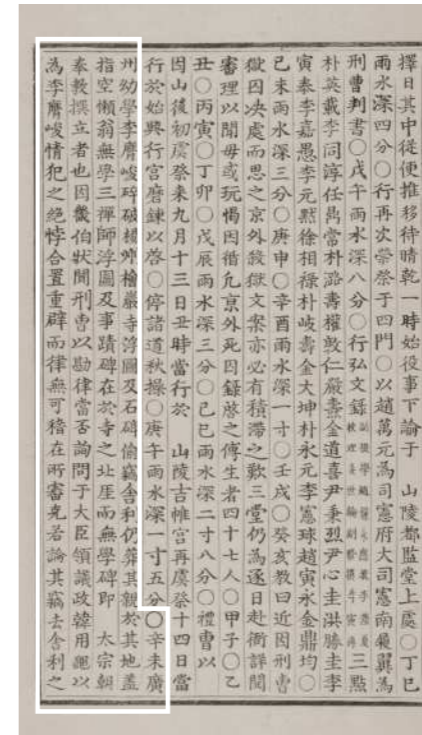 擇日其中從便推移待晴乾一時始役事下諭于　山陵都監堂上處○丁巳
雨水深四分○行再次禜祭于四門○以趙萬元為司憲府大司憲南履翼為
刑曹判書○戊午雨水深八分○行弘文錄三點
朴英載李同淳任㒞當朴潞壽權敦仁嚴燾金道喜尹秉烈尹心圭洪勝圭李
寅泰李嘉愚李元黙徐相祿朴岐壽金大坤朴永元李憲球趙寅永金鼎均○
己未雨水深三分○庚申○辛酉雨水深一寸○壬戌○癸亥敎曰近因刑曹
獄囚決處而思之京外殺獄文案亦必有積滯之歎三堂仍為逐日赴衙詳閱
審理以聞毋或玩愒因循凡京外死囚錄啓之傅生者四十七人○甲子○乙
丑○丙寅○丁卯○戊辰雨水深三分○己巳雨水深二寸八分○禮曹以
因山後初虞祭來九月十三日丑時當行於　山陵吉帷宮再虞祭十四日當
行於始興行宮磨鍊以啓○停諸道秋操○庚午雨水深一寸五分○辛未廣
州幼學李膺峻碎破楊州檜巖寺浮圖及石碑偷竊舍利仍葬其親於其地蓋
指空懶翁無學三禪師浮圖及事蹟碑在於寺之北厓而無學碑即　太宗朝
奉教撰立者也因畿伯狀聞刑曹以勘律當否詢問于大臣領議政韓用龜以
為李膺峻情犯之絕悖合置重辟而律無可稽在所審克若論其竊去舍利之